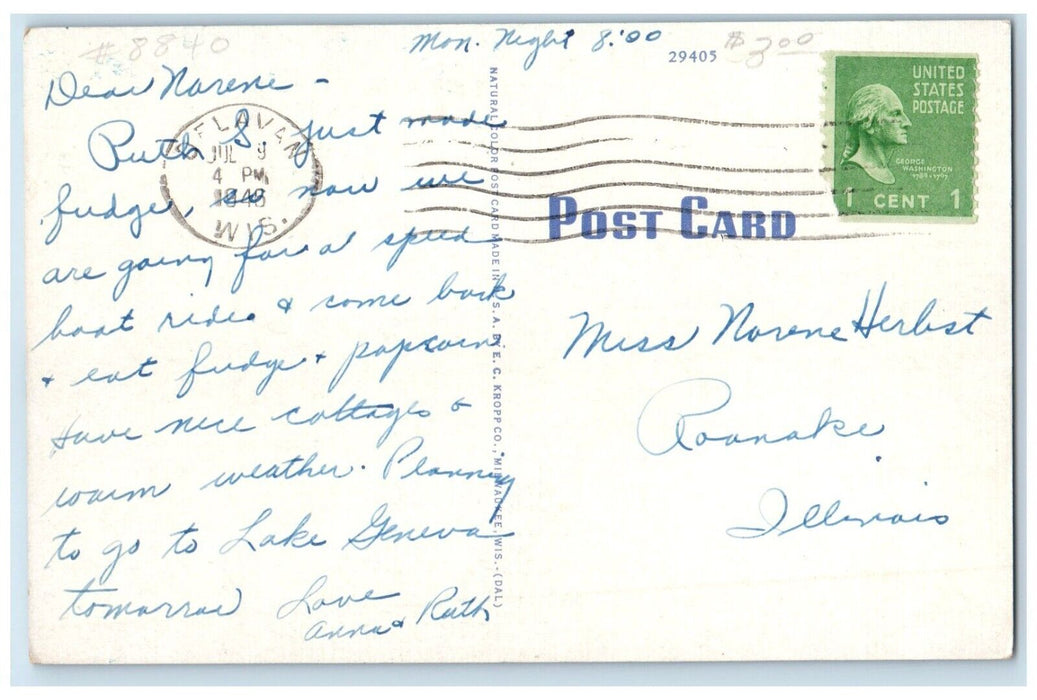 # 8840
Mon. Night 8:00
29405
$3.00
Dear Norene -
Ruth & I just made
fudge, now we
are going for a speed
boat ride & come back
& eat fudge & popcorn
Have nice cottages &
warm weather. Planning
to go to Lake Geneva
tomorrow Love
Anna & Ruth
DELAVAN
JUL 9
4 PM
WIS.
NATURAL COLOR POST CARD MADE IN U.S.A. BY E. C. KROPP CO., MILWAUKEE, WIS.-(DAL)
UNITED
STATES
POSTAGE
GEORGE
WASHINGTON
1789-1797
1 CENT 1
POST CARD
Miss Norene Herbst
Roanoke
Illinois